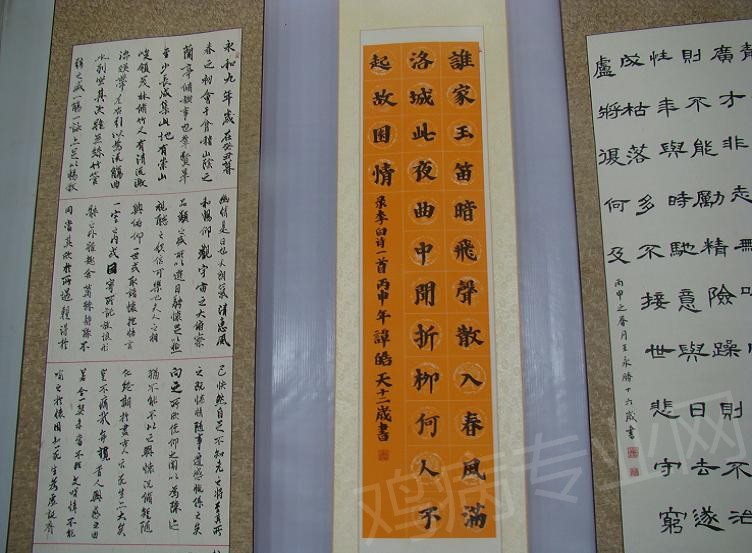 永和九年歲在癸丑暮
春之初會于會稽山陰之
蘭亭脩禊事也羣賢畢
至少長咸集此地有崇山
峻領茂林脩竹又有清流激
湍暎帶左右引以為流觴曲
水列坐其次雖無絲竹管
弦之盛一觴一詠亦足以暢敘
幽情是日也天朗氣清惠風
和暢仰觀宇宙之大俯察
品類之盛所以遊目騁懷足以極
視聽之娛信可樂也夫人之相
與俯仰一世或取諸懷抱悟言
一室之內或因寄所託放浪形
骸之外雖趣舍萬殊靜躁不
同當其欣於所遇蹔得於
己怏然自足不知老之將至及其所
之既惓情隨事遷感慨係之矣
向之所欣俛仰之間以為陳迹
猶不能不以之興懷況脩短隨
化終期於盡古人云死生亦大矣
豈不痛哉每攬昔人興感之由
若合一契未嘗不臨文嗟悼不能
喻之於懷固知一死生為虛誕齊
誰家玉笛暗飛聲散入春風滿
洛城此夜曲中聞折柳何人不
起故園情
录李白诗一首丙申年諱皓天十二歲書
則不能勵精險
性年與時馳意與日去遂
成枯落多不接世悲守窮
廬將復何及
丙申之春月王永勝十六歲書
鸡病专业网